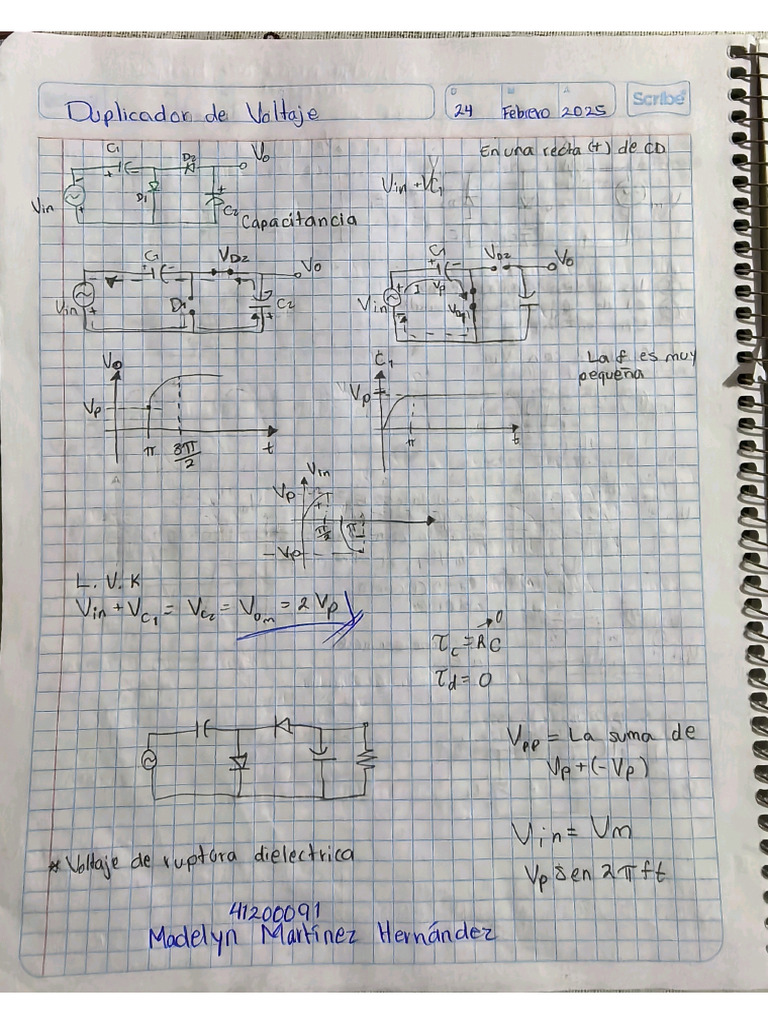 D M A
Duplicador de Voltaje
24 Febrero 2025
Scribe
C1 D2 Vo
Vin D1 C2
Capacitancia
En una recta (+) de CD
Vin + VC1
C1 VD2 Vo
Vin D1 C2
C1 VD2 Vo
Vin I Vp
La f es muy
pequeña
Vo
Vp
π 3π/2 t
C1
Vp
π t
Vin
Vp
π/2 π
-Vp
L. V. K
Vin + VC1 = VC2 = Vom = 2 Vp
τc = RC → 0
τd = 0
Vpp = La suma de
Vp + (- Vp)
Vin = Vm
Vp sen 2πft
* Voltaje de ruptura dielectrica
41200091
Madelyn Martínez Hernández